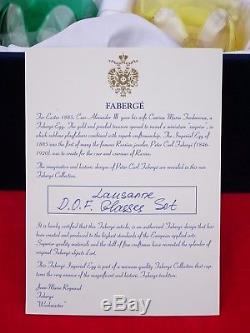 FABERGÉ
For Easter 1885, Czar Alexander III gave his wife Czarina Maria Feodorovna, a
Faberge Egg. The gold and jeweled treasure opened to reveal a miniature "surprise", in
which sublime playfulness combined with superb craftsmanship. The Imperial Egg of
1885 was the first of many the famous Russian jeweler, Peter Carl Faberge (1846-
1920), was to create for the czar and czarinas of Russia.
The imaginative and historic designs of Peter Carl Faberge are revealed in this new
Faberge Collection.
Lausanne
D.O.F. Glasses Set
It is hereby certified that this Faberge article, is an authorized Faberge design that has
been created and produced to the highest standards of the European applied arts.
Superior quality materials and the skill of fine craftsmen have recreated the splendor of
original Faberge objets d'art.
This Faberge Imperial Egg is part of a museum quality Faberge Collection that captures
the very essence of the magnificent and historic Faberge tradition.
Faberge
"Workmaster"